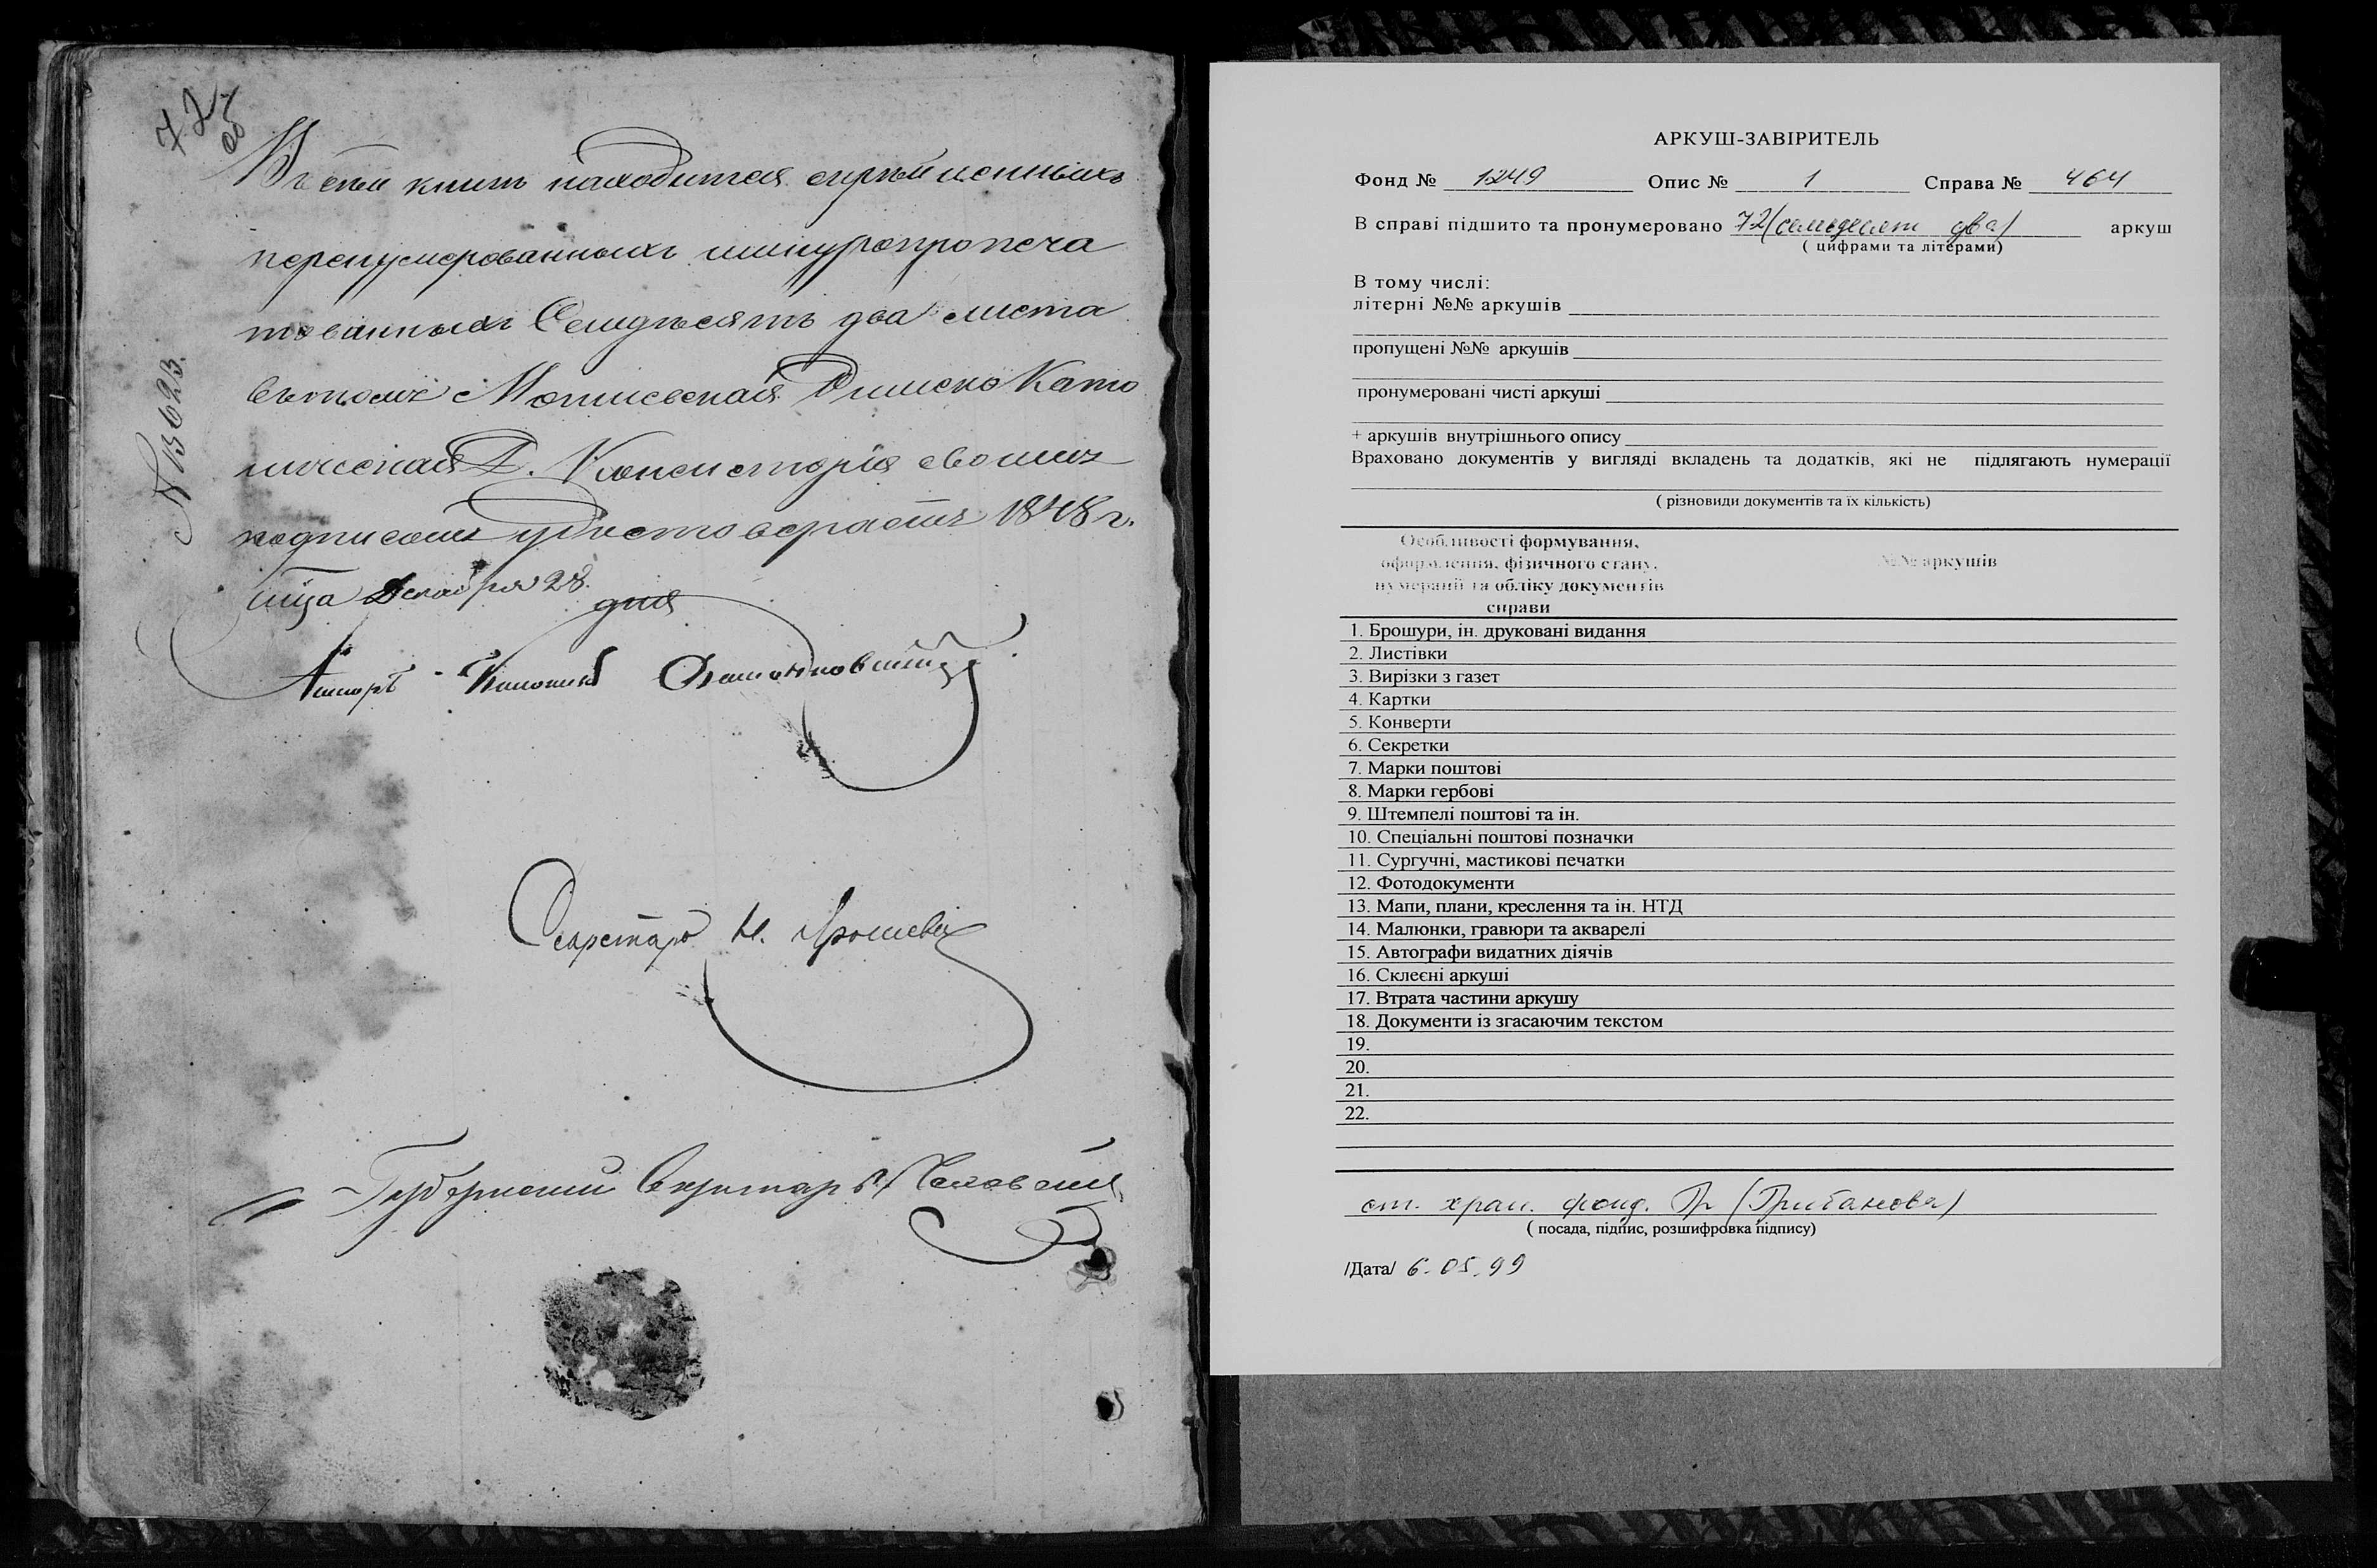 72
об
Въ сей книгѣ находится скрѣпленныхъ
перенумерованныхъ шнуропропеча
тованныхъ Семдѣсятъ два листа
въ томъ Могилевская Римско Като
лическая Д. Консисторія своимъ
подписомъ удостоверяетъ 1848 г.
мца Декабря 28.
дня
N 13623.
Ассесоръ Каноникъ
Секретарь
Губернскій Секретарь
АРКУШ-ЗАВІРИТЕЛЬ
Фонд № 1249 Опис № 1 Справа № 464
В справі підшито та пронумеровано 72 (семдесят два) аркуш
( цифрами та літерами)
В тому числі:
літерні №№ аркушів
пропущені №№ аркушів
пронумеровані чисті аркуші
+ аркушів внутрішнього опису
Враховано документів у вигляді вкладень та додатків, які не підлягають нумерації
( різновиди документів та їх кількість)
Особливості формування,
оформлення, фізичного стану,
нумерації та обліку документів
справи
№№ аркушів
1. Брошури, ін. друковані видання
2. Листівки
3. Вирізки з газет
4. Картки
5. Конверти
6. Секретки
7. Марки поштові
8. Марки гербові
9. Штемпелі поштові та ін.
10. Спеціальні поштові позначки
11. Сургучні, мастикові печатки
12. Фотодокументи
13. Мапи, плани, креслення та ін. НТД
14. Малюнки, гравюри та акварелі
15. Автографи видатних діячів
16. Склеєні аркуші
17. Втрата частини аркушу
18. Документи із згасаючим текстом
19.
20.
21.
22.
ст. хран. фонд. Гр (Грибанова)
( посада, підпис, розшифровка підпису)
/Дата/ 6.05.99